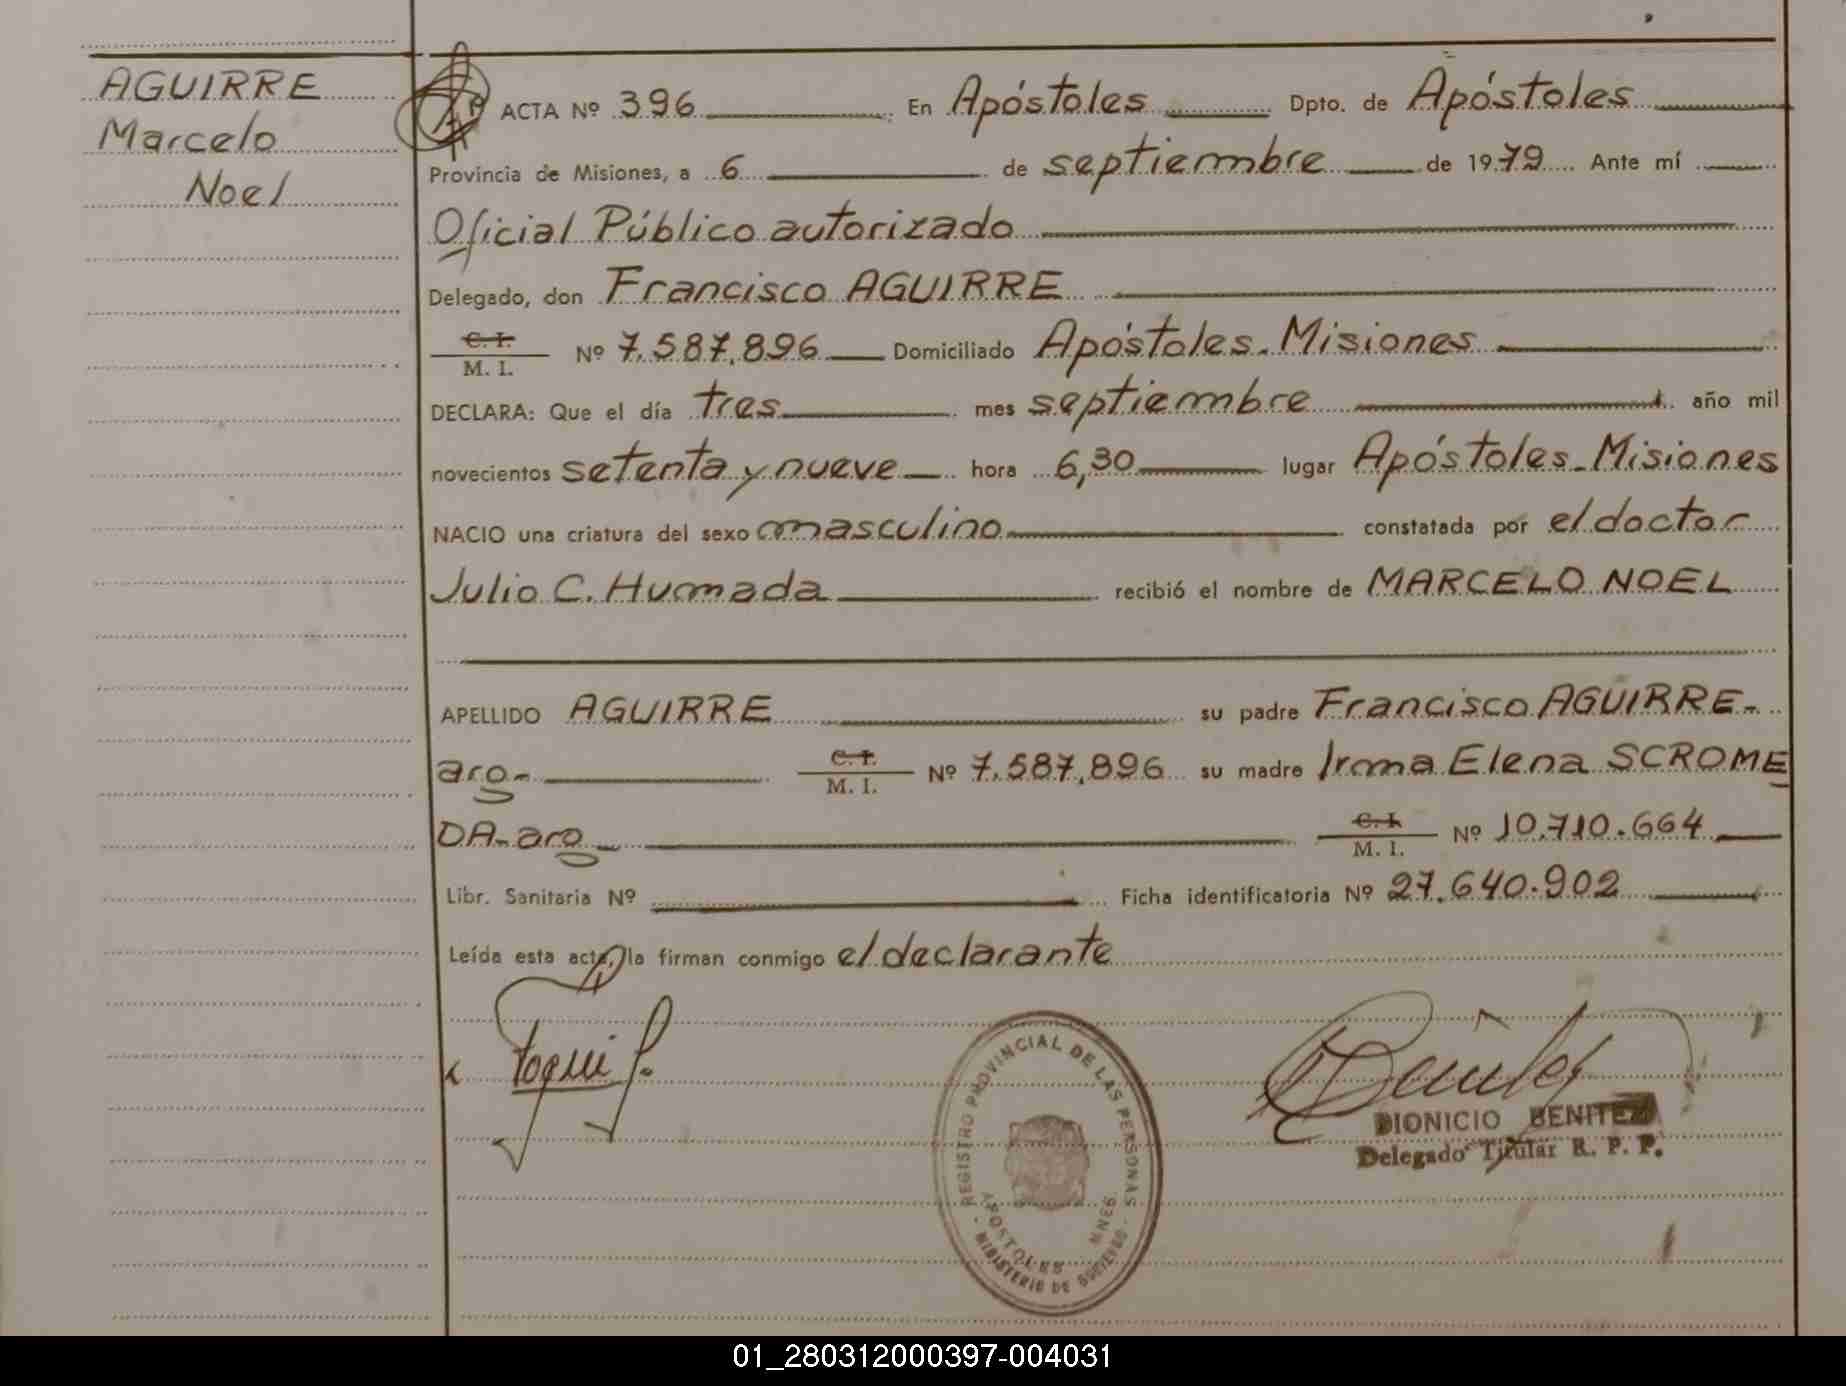 AGUIRRE
Marcelo
Noel
ACTA Nº 396 En Apóstoles Dpto. de Apóstoles
Provincia de Misiones, a 6 de septiembre de 1979 Ante mí
Oficial Público autorizado
Delegado, don Francisco AGUIRRE
C. I.
M. I. Nº 7.587.896 Domiciliado Apóstoles-Misiones
DECLARA: Que el día tres mes septiembre año mil
novecientos setenta y nueve hora 6,30 lugar Apóstoles-Misiones
NACIO una criatura del sexo masculino constatada por el doctor
Julio C. Humada recibió el nombre de MARCELO NOEL
APELLIDO AGUIRRE su padre Francisco AGUIRRE-
arg- C. I.
M. I. Nº 7.587.896 su madre Irma Elena SCROME
DA-arg- C. I.
M. I. Nº 10.710.664
Libr. Sanitaria Nº Ficha identificatoria Nº 27.640.902
Leída esta acta, la firman conmigo el declarante
REGISTRO PROVINCIAL DE LAS PERSONAS
APOSTOLES MNES.
MINISTERIO DE GOBIERNO
DIONICIO BENITEZ
Delegado Titular R. P. P.
01_280312000397-004031